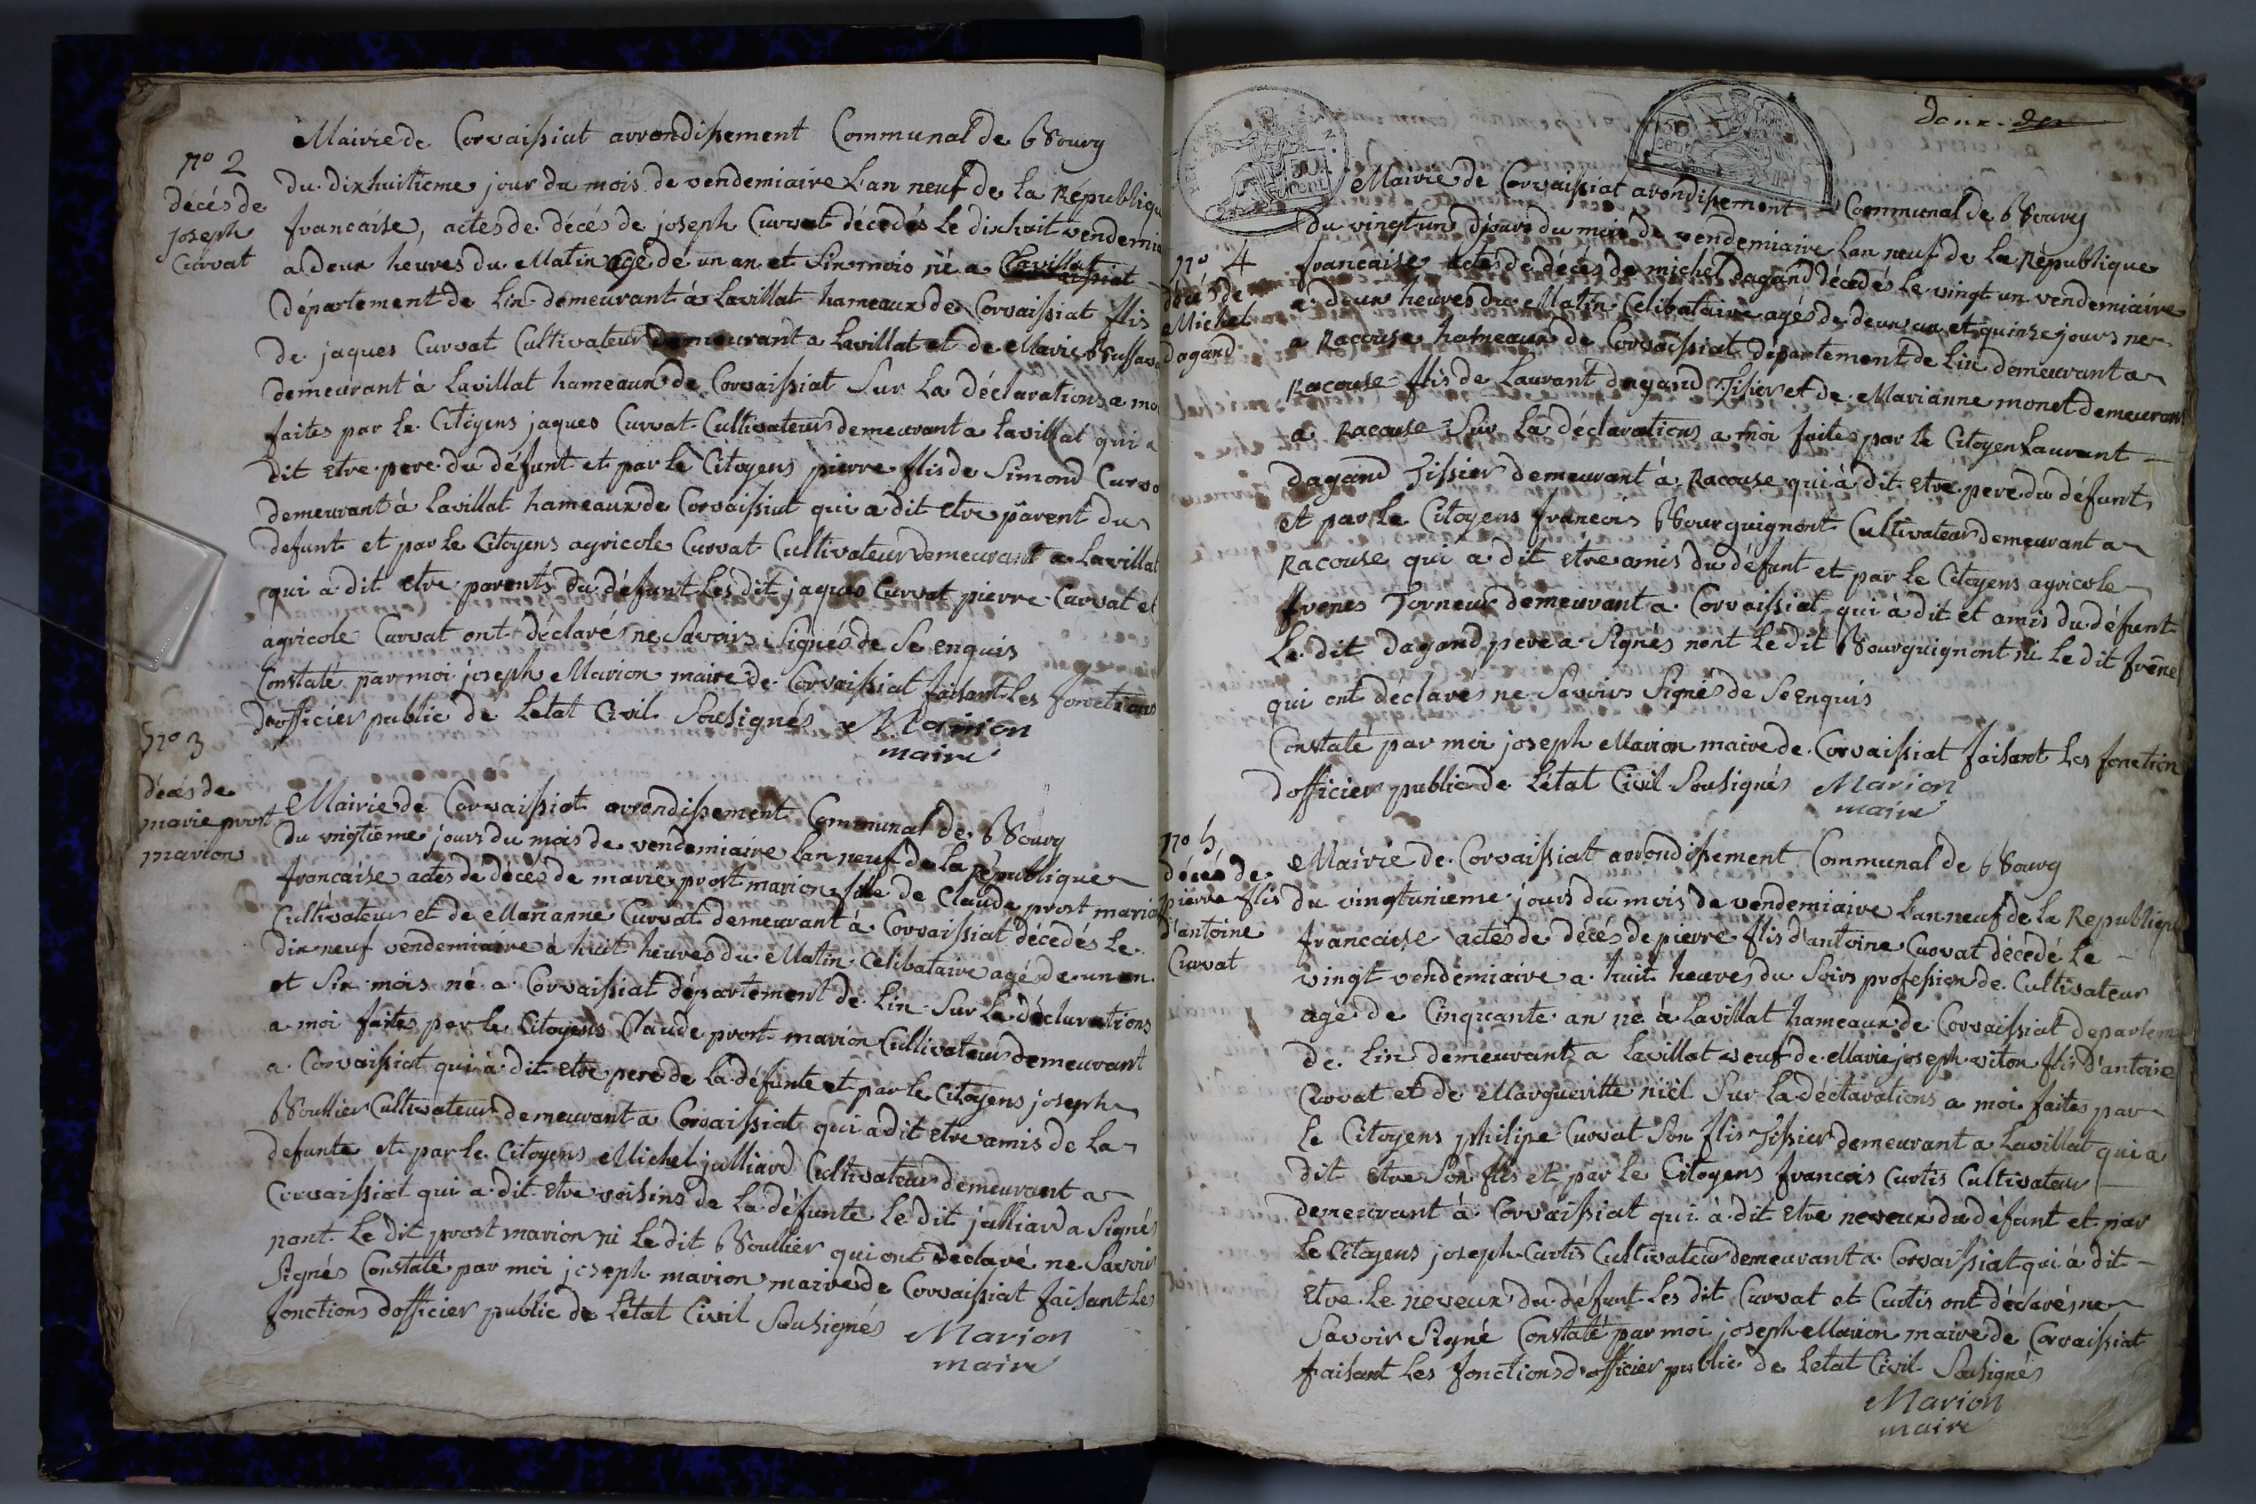 Mairie de Corvaissiat arrondissement Communal de Bourg
n° 2
décés de
joseph
Curvat
du dixhuitieme jour du mois de vendemiaire L'an neuf de la Républiqu
francaise, actes de décés de joseph Curvat décédés le dixhuit vendemia
a deux heures du Matin agé de un an et Six mois né a
Département de Lin demeurant à Lavillat hameaux de Corvaissiat flis
de jaques Curvat Cultivateur demeurant a Lavillat et de Marie
demeurant à Lavillat hameaux de Corvaissiat Sur La déclarations a mo
faites par le Citoyens jaques Curvat Cultivateur demeurant a Lavillat qui a
dit Etre pere du défunt et par le Citoyens pierre flis de Simond Curva
demeurant à Lavillat hameaux de Corvaissiat qui a dit Etre parent du
defunt et par le Citoyens agricole Curvat Cultivateur demeurant a Lavillat
qui à dit etre parents du défunt Les dit jaques Curvat pierre Curvat et
agricole Curvat ont déclarés ne Savoirs Signés de Se enquis
Constaté par moi joseph Marion maire de Corvaissiat faisant Les fonctions
dofficier public de Letat Civil Sousignés Marion
maire
n° 3
décés de
marie prost
marion
Mairie de Corvaissiat arrondissement Communal de Bourg
Du vingtieme jours du mois de vendemiaire Lan neuf de la République
francaise actes de décés de marie prost marion fille de Claude prost mario
Cultivateur et de Marianne Curvat demeurant à Corvaissiat décédés le
dix neuf vendemiaire à huit heures du Matin Celibataire agé de un an
et Six mois né a Corvaissiat département de Lin Sur La déclarations
a moi faites par le Citoyens Claude prost marion Cultivateur demeurant
a Corvaissiat qui à dit Etre pere de La défunte et par le Citoyens joseph
Boullier Cultivateur demeurant a Corvaissiat qui a dit Etre amis de La
defunte et par le Citoyens Michel julliard Cultivateur demeurant a
Corvaissiat qui a dit Etre voisins de La défunte Le dit julliard a Signés
nont Le dit prost marion ni Le dit Boullier qui ont Declaré ne Savoir
Signés Constaté par moi joseph marion maire de Corvaissiat faisant Les
fonctions dofficier public de Létat Civil Sousignés Marion
maire
Deux
50
CENT
50
CENT
Mairie de Corvaissiat arondissement Communal de Bourg
du vingt un D jours du mois de vendemiaire Lan neuf de La République
n° 4
décés de
Michel
dagand
francaise actes de décés de michel dagand décédés Le vingt un vendemiaire
a deux heures du Matin Celibataire agés de deux an et quinze jours ne
a Racouse hameaux de Corvaissiat département de Lin demeurant a
Racouse flis de Laurant dagand Tissier et de Marianne monet demeurant
a Racouse Sur La déclarations a moi faites par le Citoyen Laurant
dagand Tissier demeurant à Racouse qui à dit etre pere du défunt
et par le Citoyens francois Bourguignont Cultivateur demeurant a
Racouse qui a dit etre amis du défunt et par le Citoyens agricole
frenes Torneur demeurant a Corvaissiat qui à dit et amis du défunt
Le dit Dagand pere a Signés nont Le dit Bourguignont ni Le dit frêne
qui ont déclarés ne Savoirs Signés de Se Enquis
Constaté par moi joseph Marion maire de Corvaissiat faisant Les fonction
dofficier public de Létat Civil Sousignés Marion
maire
n° 5
décés de
pierre flis
d'antoine
Curvat
Mairie de Corvaissiat arrondissement Communal de Bourg
du vingtunieme jours du mois de vendemiaire Lan neuf de la Republique
francaise actes de décés de pierre flis d'antoine Curvat décédé Le
vingt vendemiaire a huit heures du Soirs profession de Cultivateur
agé de Cinquante an né à Lavillat hameaux de Corvaissiat departem
de Lin demeurant a Lavillat veuf de Marie joseph viton flis D'antoine
Curvat et de Marguerite niel Sur La déclarations a moi faites par
Le Citoyens philipe Curvat Son flis Tissier demeurant a Lavillat qui a
dit Etre Son flis et par le Citoyens francois Curtis Cultivateur
demeurant à Corvaissiat qui à dit Etre neveux du défunt et par
Le Citoyens joseph Curtis Cultivateur demeurant a Corvaissiat qui à dit
Etre Le neveux du défunt Les dit Curvat et Curtis ont déclarés ne
Savoir Signé Constaté par moi joseph Marion maire de Corvaissiat
faisant Les fonctions d'officier public de Letat Civil Sousignés
Marion
maire